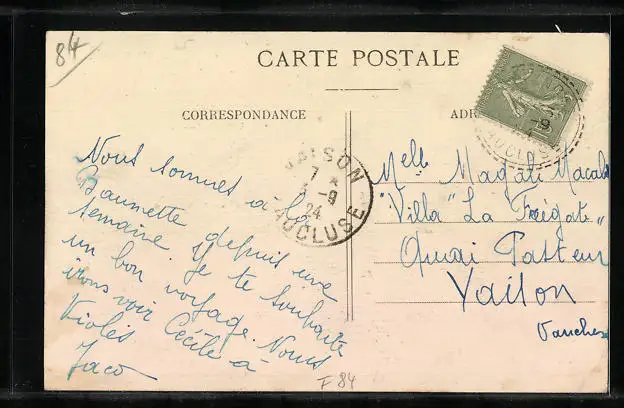 84
CARTE POSTALE
CORRESPONDANCE
ADR
Nous sommes à la
Baumette depuis une
semaine. Je te souhaite
un bon voyage. Nous
irons voir Cécile à
Violès
Jaco
VAISON
7 *
3 -9
24
VAUCLUSE
-9
VAUCLUSE
Melle Magali Macab
"Villa" La Frégate"
Quai Pasteur
Vaison
Vaucluse
F 84